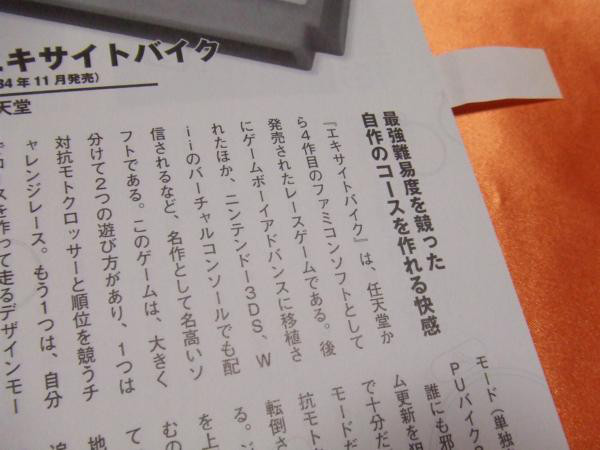 エキサイトバイク
84年11月発売)
天堂
最強難易度を競った
自作のコースを作れる快感
『エキサイトバイク』は、任天堂か
ら4作目のファミコンソフトとして
発売されたレースゲームである。後
にゲームボーイアドバンスに移植さ
れたほか、ニンテンドー3DS、W
iiのバーチャルコンソールでも配
信されるなど、名作として名高いソ
フトである。このゲームは、大きく
分けて2つの遊び方があり、1つは
対抗モトクロッサーと順位を競うチ
ャレンジレース。もう1つは、自分
でコースを作って走るデザインモー
モード(単独
PUバイク
誰にも邪
ム更新を狙
で十分だ
モードだ
抗モト
転倒さ
る。
を上
むの
て
地